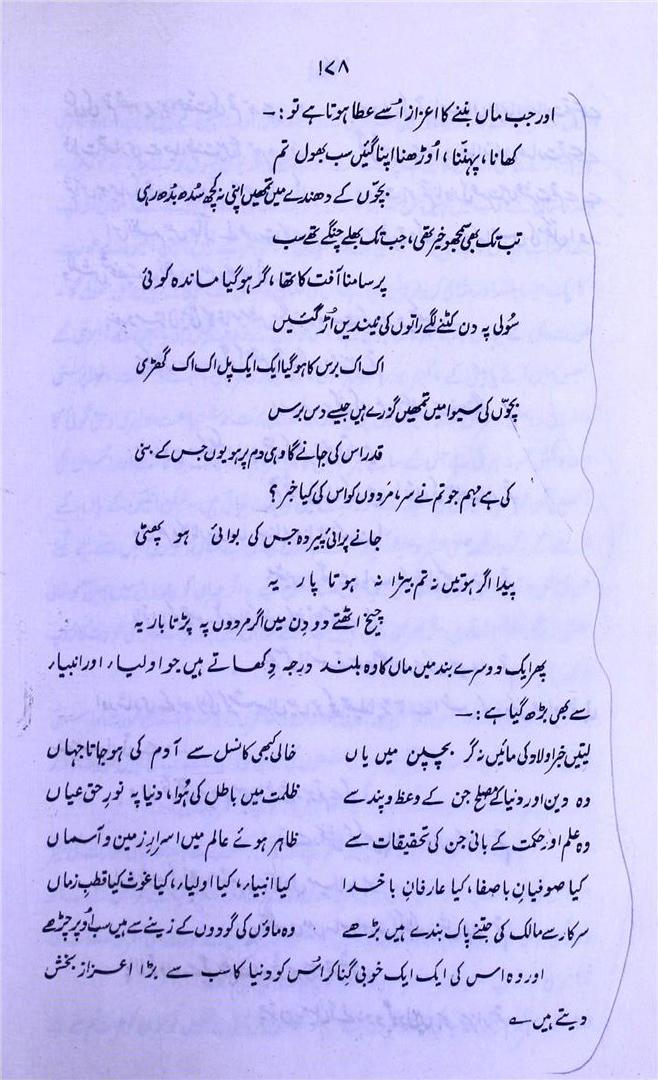 ۱۷۸
اور جب ماں بننے کا اعزاز اُسے عطا ہوتا ہے تو :—
کھانا، پہننا، اُوڑھنا اپنا گئیں سب بھول تم
بچوّں کے دھندے میں تمھیں اپنی نہ کچھ سُدھ بُدھ رہی
تب تک بھی سمجھو خیر تھی، جب تک بھلے چنگے تھے سب
پر سامنا آفت کا تھا، گر ہو گیا ماندہ کوئی
سُولی پہ دن کٹنے لگے راتوں کی نیندیں اُڑ گئیں
اک اک برس کا ہو گیا ایک ایک پل اک اک گھڑی
بچوّں کی سیوا میں تمھیں گزرے ہیں جیسے دس برس
قدر اس کی جانے گا وہی دم پر ہو یوں جس کے بنی
کی ہے مہم جو تم نے سر، مردوں کو اس کی کیا خبر؟
جانے پرائی پیر وہ جس کی بوائی ہو پھٹی
پیدا اگر ہوتیں نہ تم بیڑا نہ ہوتا پار یہ
چیخ اٹھتے دو دِن میں اگر مردوں پہ پڑتا بار یہ
پھر ایک دوسرے بند میں ماں کا وہ بلند درجہ دکھاتے ہیں جو اولیاء اور انبیاء
سے بھی بڑھ گیا ہے :—
لیتیں خبر اولاد کی مائیں نہ گر بچپن میں یاں خالی کبھی کا نسل سے آدم کی ہو جاتا جہاں
وہ دین اور دنیا کے مصلح جن کے وعظ و پند سے ظلمت میں باطل کی ہُوا، دنیا پہ نورِ حق عیاں
وہ علم اور حکمت کے بانی جن کی تحقیقات سے ظاہر ہوئے عالم میں اسرارِ زمین و آسماں
کیا صوفیانِ باصفا، کیا عارفانِ با خدا کیا انبیاء، کیا اولیاء، کیا غوث کیا قطبِ زماں
سرکار سے مالک کی جتنے پاک بندے ہیں بڑھے وہ ماؤں کی گودوں کے زینے سے ہیں سب اوپر چڑھے
اور وہ اس کی ایک ایک خوبی گِنا کر اُس کو دنیا کا سب سے بڑا اعزاز بخش
دیتے ہیں ے